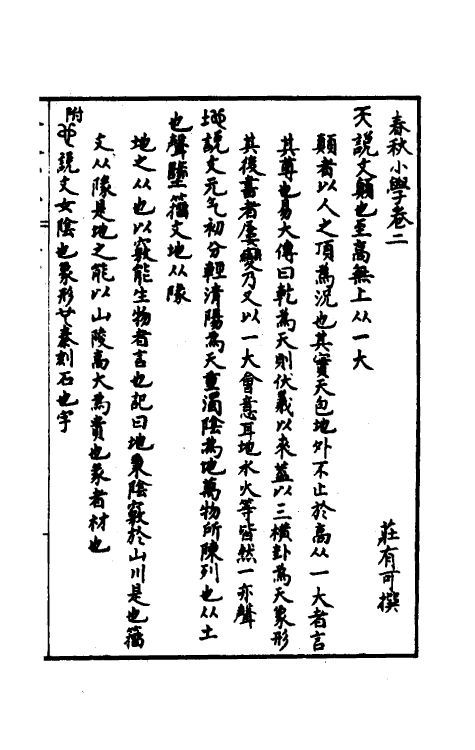 春秋小學卷二
莊有可撰
天說文顛也至高無上从一大
顛者以人之頂為況也其實天包地外不止於高从一大者言
其尊也易大傳曰乾為天則伏羲以來蓋以三橫卦為天象形
其後書者屢變乃又以一大會意耳地水火等皆然一亦聲
地說文元气初分輕清陽為天重濁陰為地萬物所陳列也从土
也聲墬籀文地从隊
地之从也以竅能生物者言也記曰地秉陰竅於山川是也籀
文从隊是地之能以山陵高大為貴也象者材也
附也說文女陰也象形廿秦刻石也字